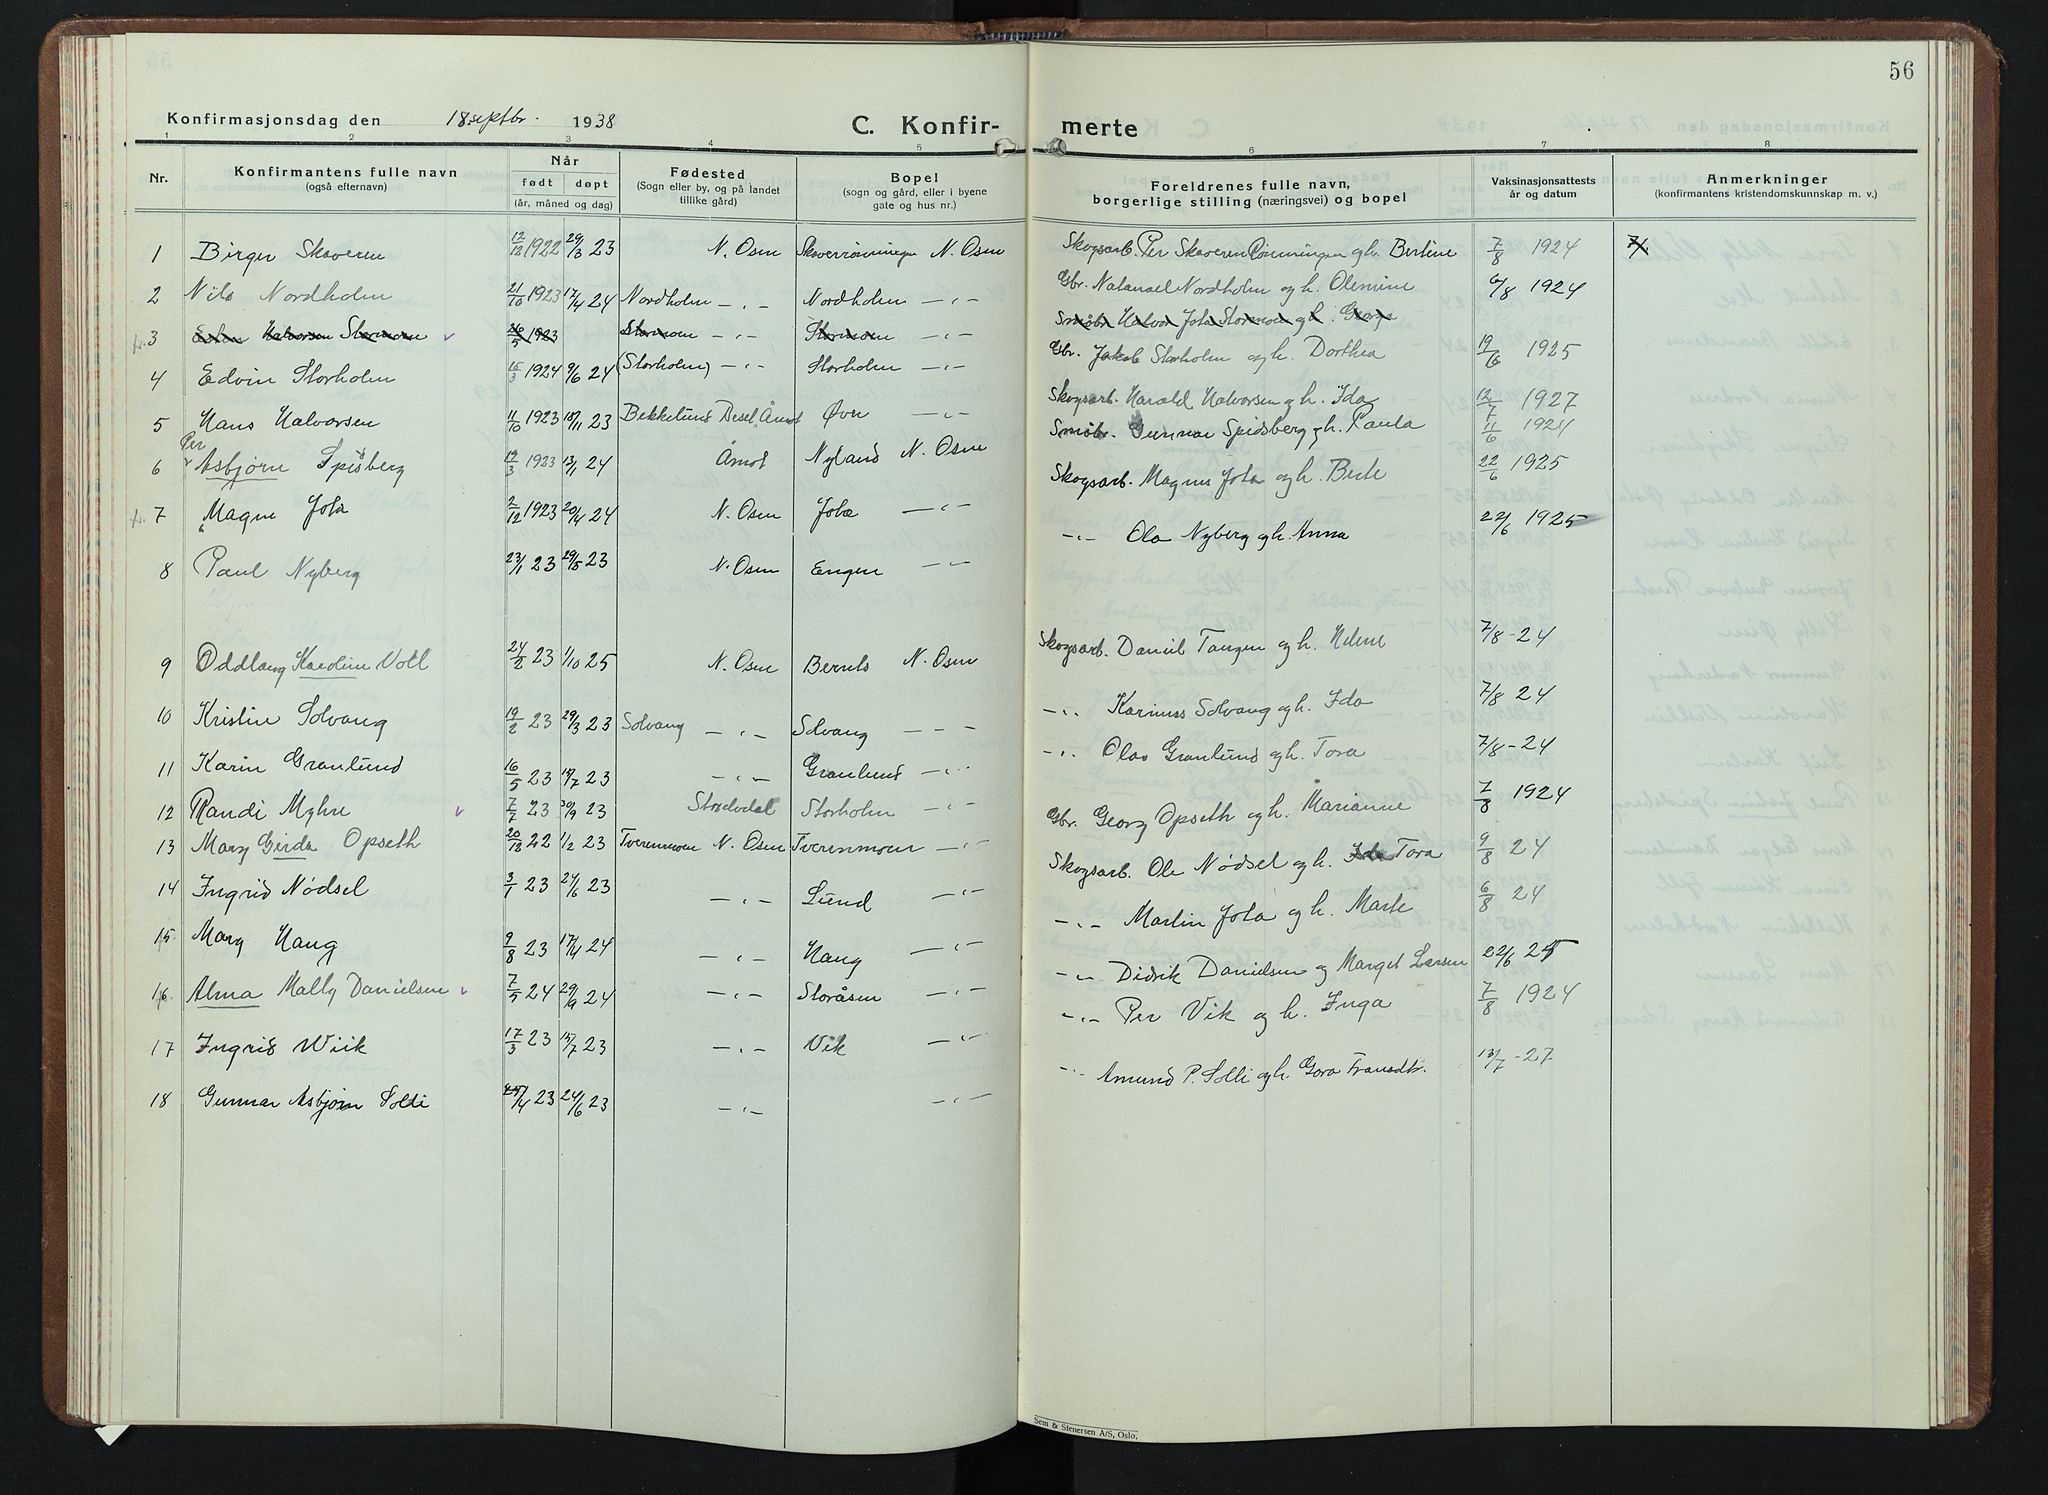 56
Konfirmasjonsdag den 18 septbr. 1938
C. Konfirmerte
1 2 3 4 5 6 7 8
Nr. Konfirmantens fulle navn (også efternavn) Når født døpt (år, måned og dag) Fødested (Sogn eller by, og på landet tillike gård) Bopel (sogn og gård, eller i byene gate og hus nr.) Foreldrenes fulle navn, borgerlige stilling (næringsvei) og bopel Vaksinasjonsattests år og datum Anmerkninger (konfirmantens kristendomskunnskap m. v.)
1 Birger Skaveren 17/12 1922 29/3 23 N. Osen N. Osen Skogsarb. Per Skaveren Rønningen og h. Bertine 7/8 1924
2 Nils Nordholm 21/10 1923 17/4 24 Nordholm -"- Nordholm -"- Gbr. Natanael Nordholm og h. Olemine 6/8 1924
3 Halvorsen Stormoen 26/5 1923 Stormoen -"- Stormoen -"- Småbr. Halvor Jota Stormoen og h.
4 Edvin Storholm 15/3 1924 9/6 24 (Storholm) -"- Storholm -"- Gbr. Jakob Storholm og h. Dorthea 19/6 1925
5 Hans Halvorsen 11/10 1923 18/11 23 Bekkelund Deset Åmot Øvre -"- Skogsarb. Harald Halvorsen og h. Ida 12/7 1927
6 Per Asbjørn Spidsberg 19/3 1923 13/1 24 Åmot Nyland N. Osen Småbr. Gunnar Spidsberg og h. Paula 11/6 1924
7 Magne Jota 2/12 1923 20/4 24 N. Osen Jota -"- Skogsarb. Magnus Jota og h. Berte 22/6 1925
8 Paul Nyberg 23/1 23 29/5 23 N. Osen Engen -"- -"- Ola Nyberg og h. Anna 22/6 1925
9 Oddlaug Karoline Voll 24/2 23 1/10 25 N. Osen N. Osen Skogsarb. Daniel Tangen og h. Helene 7/8-24
10 Kristin Solvang 19/2 23 29/3 23 Solvang -"- Solvang - - - -"- Karinus Solvang og h. Ida 7/8 24
11 Karin Granlund 16/5 23 15/7 23 -"- Granlund -"- -"- Olav Granlund og h. Tora 7/8-24
12 Randi Myhre 7/7 23 30/9 23 Storelvdal Storholm -"-
13 Mary Gerda Opseth 20/12 22 1/2 23 Tverenmoen N. Osen Tverenmoen -"- Gbr. Georg Opseth og h. Marianne 7/8 1924
14 Ingrid Nødsel 3/1 23 24/6 23 -"- Lund -"- Skogsarb. Ole Nødsel og h. Tora 9/8 24
15 Mary Haug 9/8 23 17/4 24 -"- Haug -"- -"- Martin Jota og h. Marte 6/8 24
16 Alma Mally Danielsen 7/5 24 29/9 24 -"- Storåsen -"- -"- Didrik Danielsen og Marget Larsen 22/6 25
17 Ingrid Wiik 17/3 23 15/7 23 -"- Vik -"- -"- Per Vik og h. Inga 7/8 1924
18 Gunnar Asbjørn Solli 25/4 23 24/6 23 -"- -"- -"- Amund P. Solli og h. Gora Fransdtr. 13/7-27
Sem & Stenersen A/S, Oslo.